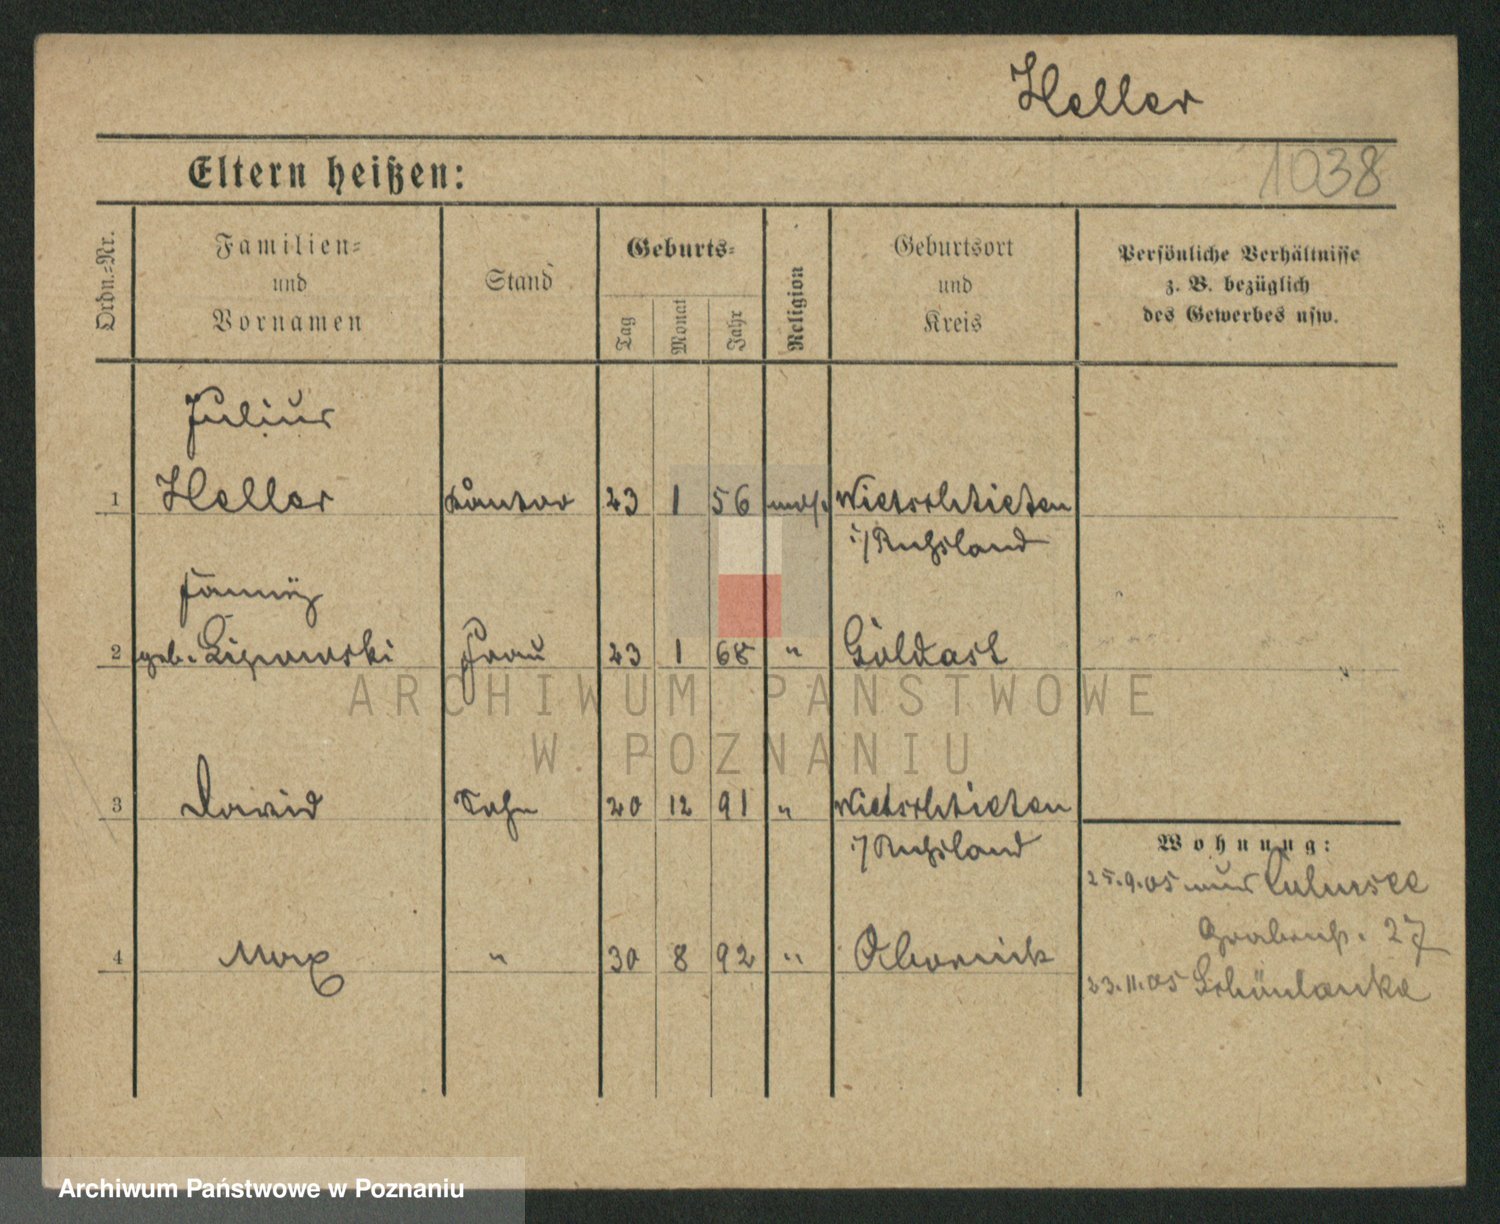 Heller
Eltern heißen:
1038
Ordn.-Nr.
Familien-
und
Vornamen
Stand
Geburts-
Tag
Monat
Jahr
Religion
Geburtsort
und
Kreis
Persönliche Verhältnisse
z. B. bezüglich
des Gewerbes usw.
Julius
1 Heller Kantor 23 1 56 mos.
i/Rußland
Fanny
2 geb. Frau 23 1 68 "
3 David Sohn 20 12 91 "
i/Rußland
4 Max " 30 8 92 " Obornick
Wohnung:
25.9.05 Culmsee
Grabenst. 27
23.11.05 Schönlanke
ARCHIWUM PAŃSTWOWE
W POZNANIU
Archiwum Państwowe w Poznaniu